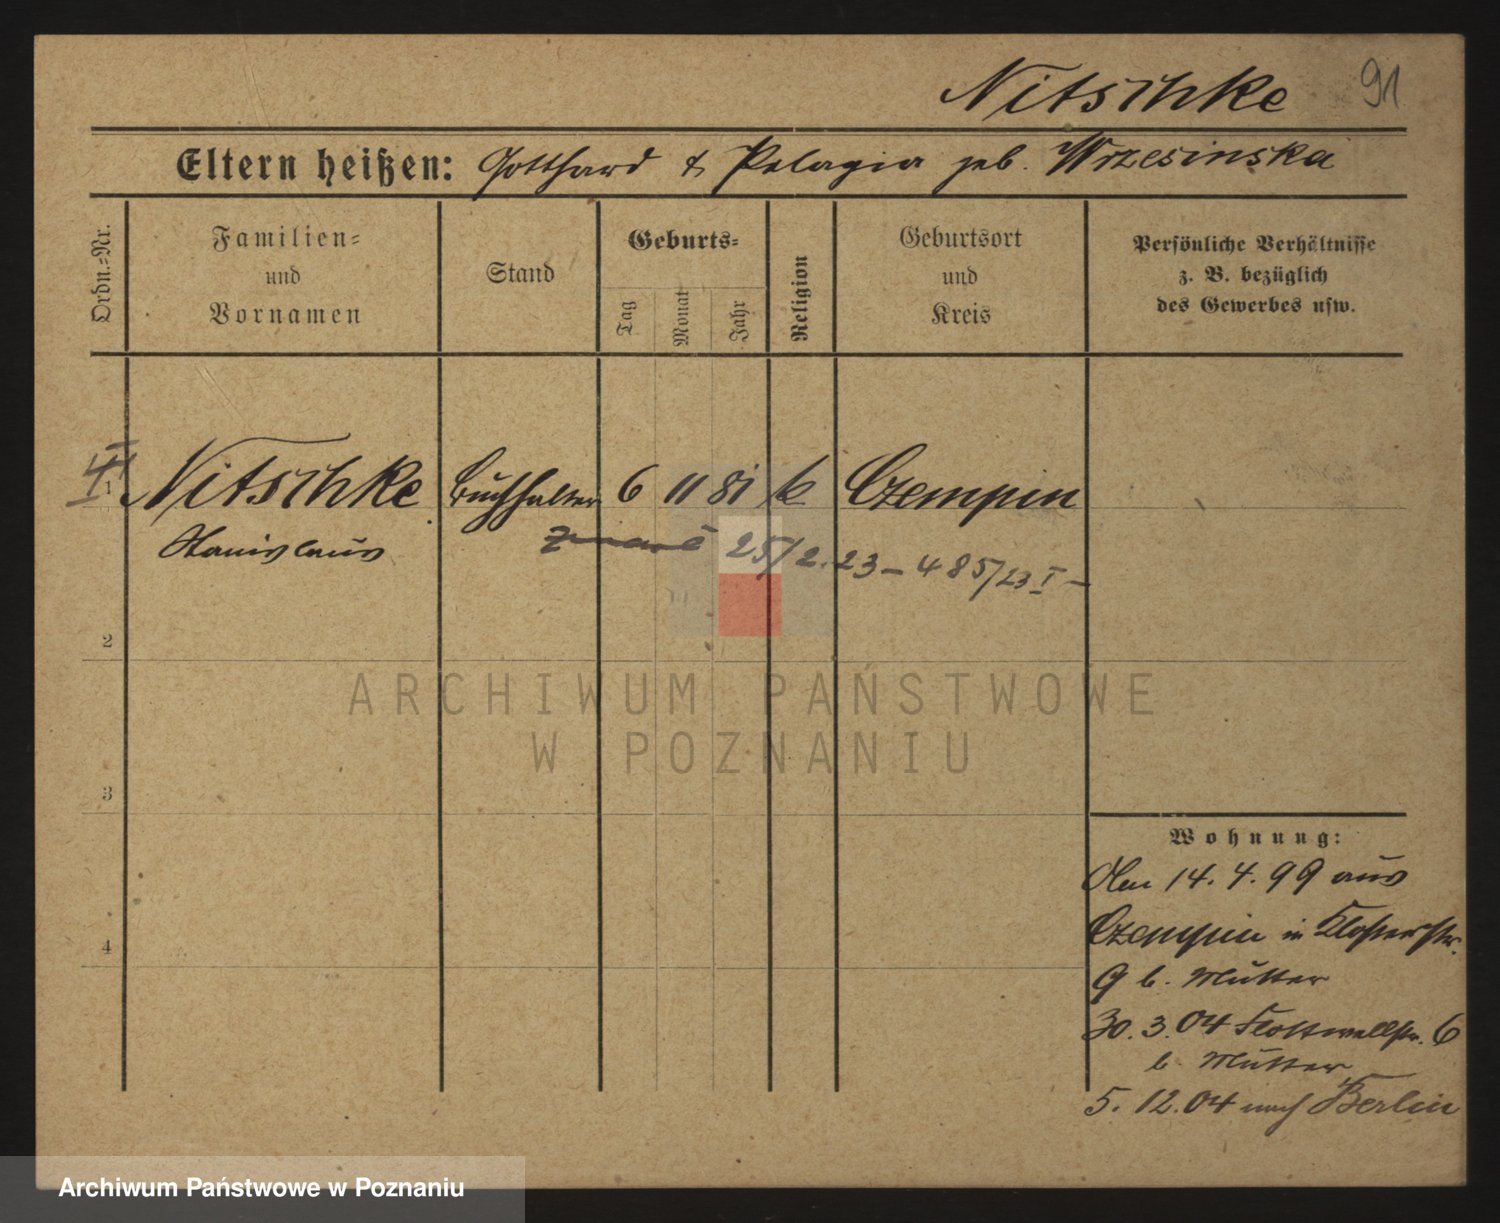 Nitschke 91
Eltern heißen: Gotthard & Pelagia geb. Wrzesinska
Ordn.-Nr.
Familien-
und
Vornamen
Stand
Geburts-
Tag
Monat
Jahr
Religion
Geburtsort
und
Kreis
Persönliche Verhältnisse
z. B. bezüglich
des Gewerbes usw.
1 Nitschke Buchhalter 6 11 81 k Czempin
Stanislaus
25/2.23 – 485/23 I –
2
3
4
ARCHIWUM PAŃSTWOWE
W POZNANIU
Wohnung:
Den 14.4.99 aus
Czempin in Klosterstr.
9 b. Mutter
30.3.04 Flottwellstr. 6
b. Mutter
5.12.04 nach Berlin
Archiwum Państwowe w Poznaniu